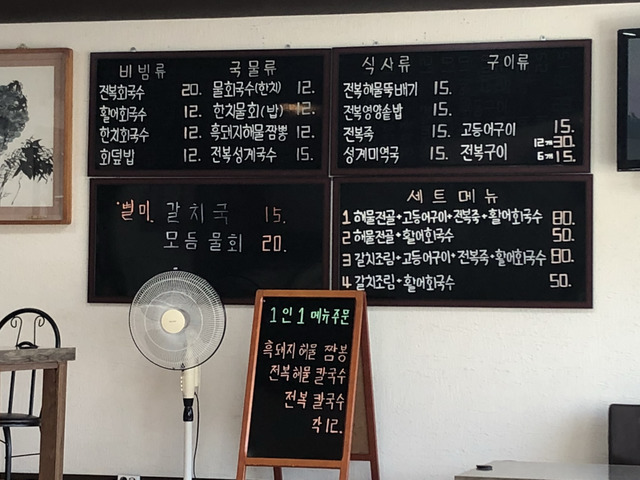 비빔류 국물류
전복회국수 20. 물회국수(한치) 12.
활어회국수 12. 한치물회(밥) 12.
한치회국수 12. 흑돼지해물짬뽕 12.
회덮밥 12. 전복성게국수 15.
식사류 구이류
전복해물뚝배기 15.
전복영양솥밥 15.
전복죽 15. 고등어구이 15.
성게미역국 15. 전복구이 12개 30.
6개 15.
별미 갈치국 15.
모듬물회 20.
세트메뉴
1 해물전골+고등어구이+전복죽+활어회국수 80.
2 해물전골+활어회국수 50.
3 갈치조림+고등어구이+전복죽+활어회국수 80.
4 갈치조림+활어회국수 50.
1인1메뉴주문
흑돼지해물 짬뽕
전복해물 칼국수
전복 칼국수
각12.